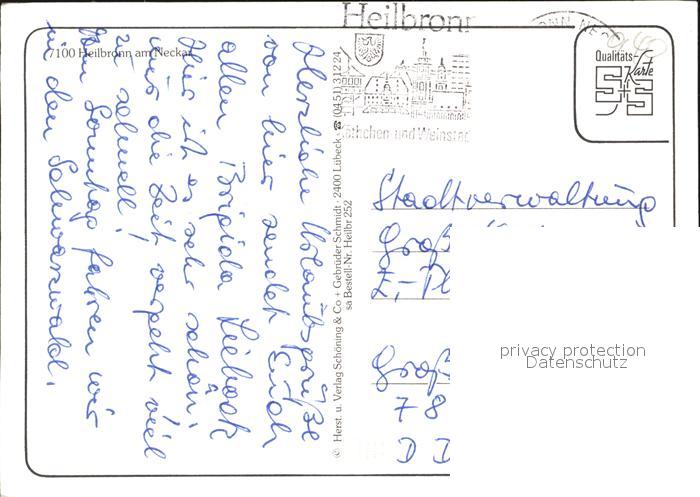 7100 Heilbronn am Neckar
Herzliche Urlaubsgrüße
von hier sendet Euch
allen Brigida
Hier ist es sehr schön,
nur die Zeit vergeht viel
zu schnell!
Am Sonntag fahren wir
in den Schwarzwald.
© Herst. u. Verlag Schöning & Co + Gebrüder Schmidt · 2400 Lübeck · ☎ (0451) 31224
sa Bestell-Nr. Heilbr 252
Heilbronn
Käthchen und Weinstadt
Qualitäts-
Karte
S+S
Stadtverwaltung
Groß
Z,-Pl
Groß
78
D D
privacy protection
Datenschutz